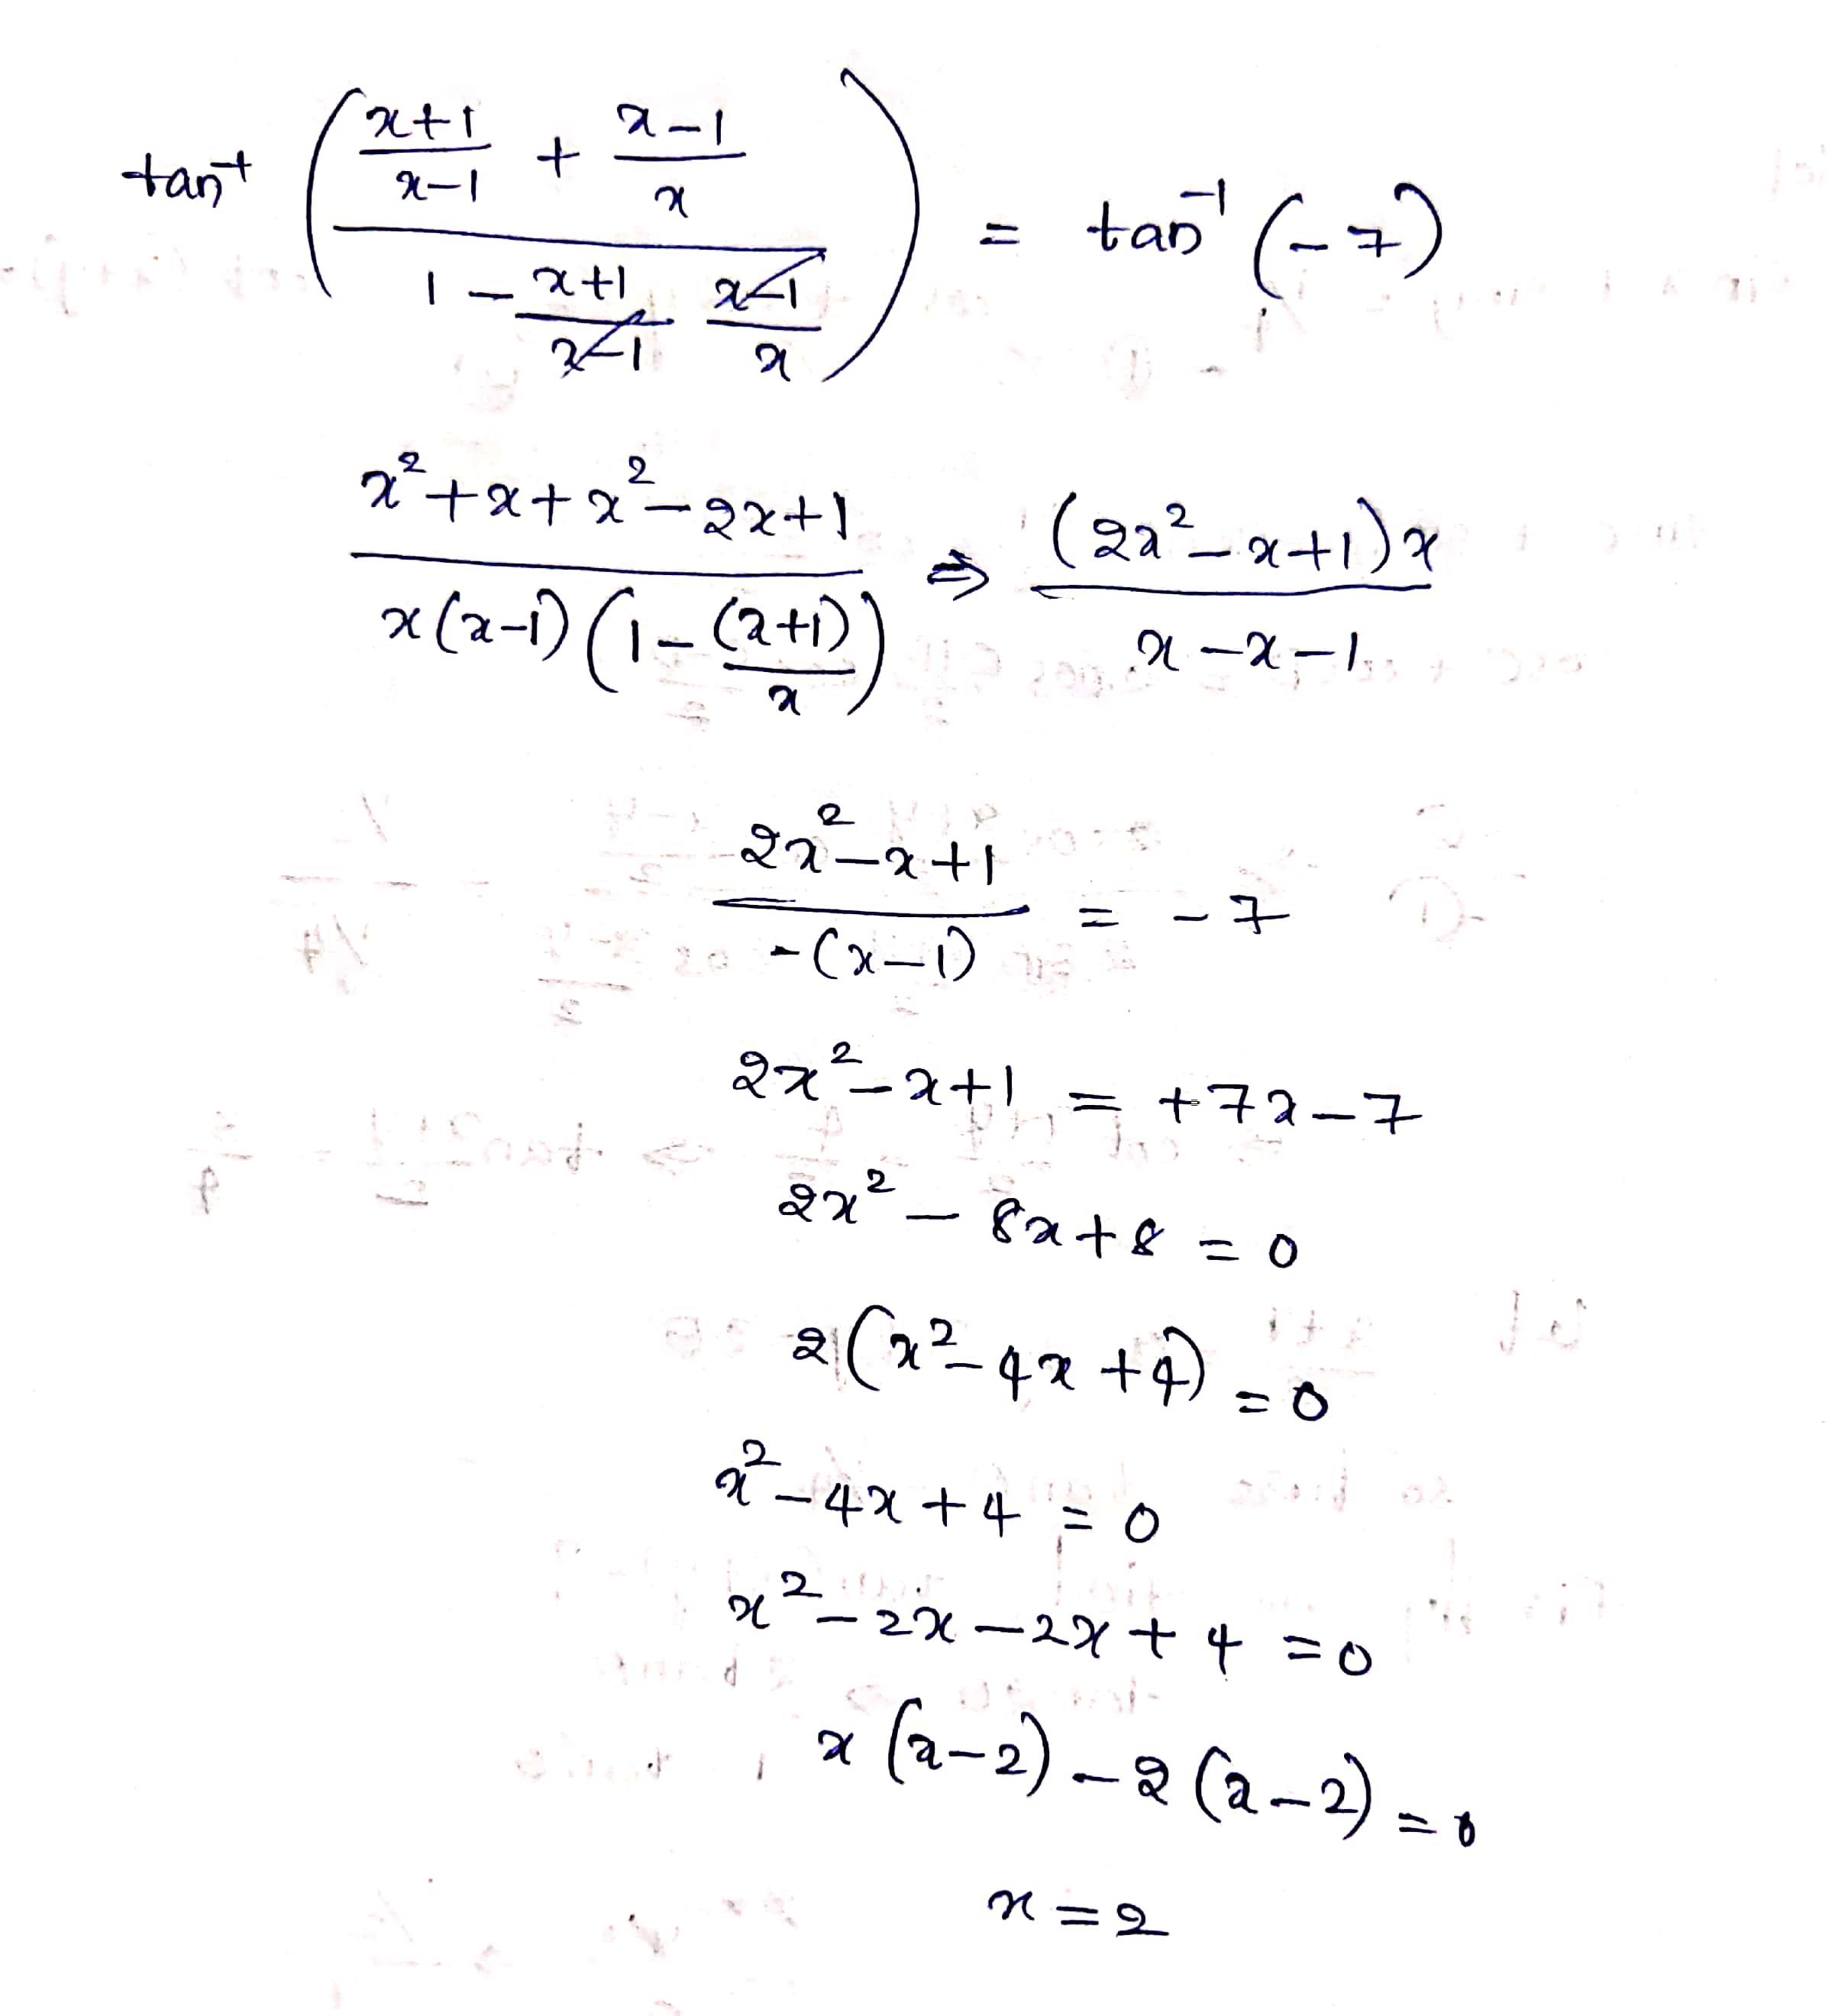 tan⁻¹ ( ( (x+1)/(x-1) + (x-1)/x ) / ( 1 - (x+1)/(x-1) (x-1)/x ) ) = tan⁻¹ (-7)
(x² + x + x² - 2x + 1) / ( x(x-1) ( 1 - (x+1)/x ) ) ⇒ ( (2x² - x + 1) x ) / ( x - x - 1 )
(2x² - x + 1) / ( -(x-1) ) = -7
2x² - x + 1 = +7x - 7
2x² - 8x + 8 = 0
2(x² - 4x + 4) = 0
x² - 4x + 4 = 0
x² - 2x - 2x + 4 = 0
x (x-2) - 2 (x-2) = 0
x = 2